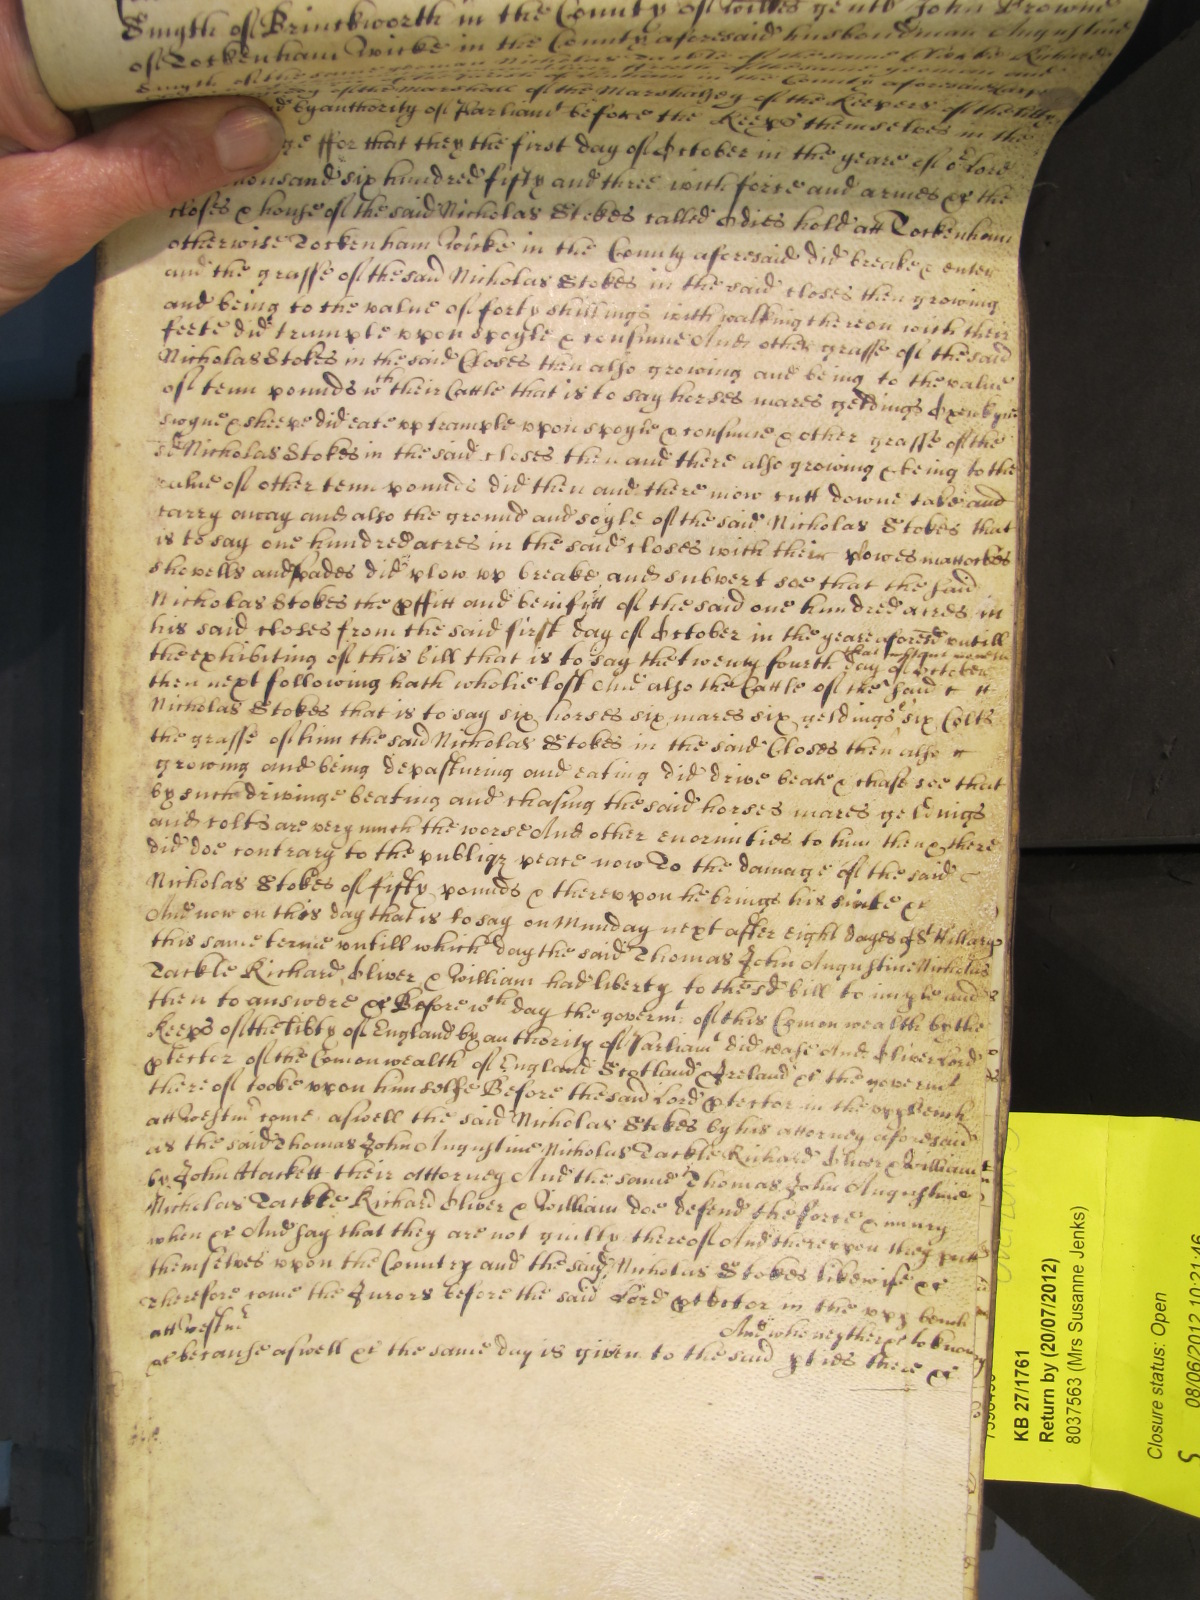 Smyth of Brinckworth in the County of Willes gentl John Browne
of Tockenham Wicke in the County aforesaid husbondman Augustine
Smyth of the same yeoman Nicholas Tackle of the same Richard
of the Marshall of the Marshalsey of the Keepers of the libty
by authority of Parliamt before the Keeps themselves in the
ffor that they the first day of October in the yeare of or Lord
thousand six hundred fifty and three with force and armes &c the
closes & house of the said Nicholas Stokes called Odies hold att Tockenham
otherwise Tockenham Wicke in the County aforesaid did breake & enter
and the grasse of the said Nicholas Stokes in the said closes then growing
and being to the value of forty shillings with walking thereon with their
feete did trample uppon spoyle & consume And other grasse of the said
Nicholas Stokes in the said Closes then also growing and being to the value
of tenn pounds wth their Cattle that is to say horses mares geldings Oxen kyne
swyne & sheepe did eate upp trample uppon spoyle & consume & other grasse of the
sd Nicholas Stokes in the said closes then and there also growing & being to the
value of other tenn pounds did then and there mow cutt downe take and
carry away and also the ground and soyle of the said Nicholas Stokes that
is to say one hundred acres in the said closes with their plowes mattockes
shovells and spades did plow up breake and subvert soe that the said
Nicholas Stokes the pffitt and benifytt of the said one hundred acres in
his said closes from the said first day of October in the yeare aforesd untill
the exhibiting of this bill that is to say the twenty fourth day of October
then next following hath wholie lost And also the Cattle of the said
Nicholas Stokes that is to say six horses six mares six geldings six Colts
the grasse of him the said Nicholas Stokes in the said Closes then also
growing and being depasturing and eating did drive beate & chase soe that
by such drivinge beating and chasing the said horses mares geldings
and colts are very much the worse And other enormities to him then & there
did doe contrary to the publiq peace now To the damage of the said
Nicholas Stokes of fifty pounds & thereuppon he brings his suite &c
And now on this day that is to say on Munday next after eight dayes of St Hillary
this same terme untill which day the said Thomas John Augustine Nicholas
Tackle Richard Oliver & William had liberty to the sd bill to imple and
then to answere &c Before wch day the governmt of this Comonwealth by the
Keeps of the libty of England by authority of Parliamt did cease And Oliver Lord
ptector of the Comonwealth of England Scotland & Ireland &c the governmt
thereof tooke uppon himselfe Before the said Lord ptector in the upp bench
att Westmr come aswell the said Nicholas Stokes by his attorney aforesaid
as the said Thomas John Augustine Nicholas Tackle Richard Oliver & William
by John Hackett their attorney And the same Thomas John Augustine
Nicholas Tackle Richard Oliver & William doe defend the force & iniury
when &c And say that they are not guilty thereof And thereuppon they putt
themselves uppon the Country and the said Nicholas Stokes likewise &c
Therefore come the Jurors before the said Lord ptector in the upp bench
att Westmr And who neyther &c to know
&c because aswell &c the same day is given to the said pties there &c
KB 27/1761
Return by (20/07/2012)
8037563 (Mrs Susanne Jenks)
Closure status: Open
08/06/2012 10:21:46